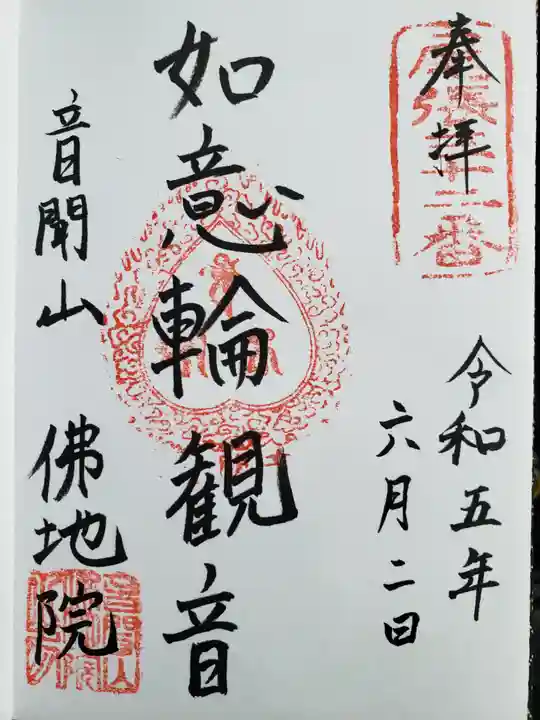 奉拝
令和五年
六月二日
如意輪観音
音聞山 佛地院